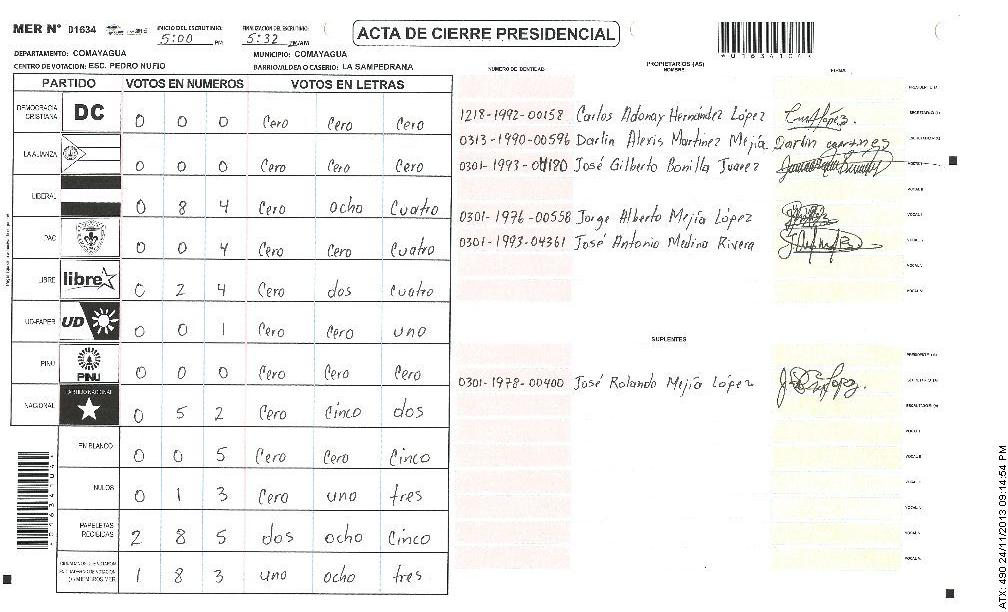 MER N° 01634
INICIO DEL ESCRUTINIO: 5:00 PM
FINALIZACION DEL ESCRUTINIO: 5:32 PM/AM
ACTA DE CIERRE PRESIDENCIAL
DEPARTAMENTO: COMAYAGUA
MUNICIPIO: COMAYAGUA
CENTRO DE VOTACION: ESC. PEDRO NUFIO
BARRIO/ALDEA O CASERIO: LA SAMPEDRANA
NUMERO DE IDENTIDAD
PROPIETARIOS (AS)
NOMBRE
FIRMA
PARTIDO VOTOS EN NUMEROS VOTOS EN LETRAS
DEMOCRACIA CRISTIANA DC 0 0 0 Cero Cero Cero
LA ALIANZA 0 0 0 Cero Cero Cero
LIBERAL 0 8 4 Cero ocho Cuatro
PAC 0 0 4 Cero Cero Cuatro
LIBRE libre 0 2 4 Cero dos Cuatro
UD-FAPER UD 0 0 1 Cero Cero uno
PINU PINU 0 0 0 Cero Cero Cero
NACIONAL PARTIDO NACIONAL 0 5 2 Cero Cinco dos
EN BLANCO 0 0 5 Cero Cero Cinco
NULOS 0 1 3 Cero uno tres
PAPELETAS RECIBIDAS 2 8 5 dos ocho Cinco
1 8 3 uno ocho tres
1218-1992-00158 Carlos Adonay Hernández López
0313-1990-00596 Darlin Alexis Martinez Mejía Darlin
José Gilberto Bonilla Juarez
0301-1976-00558 Jorge Alberto Mejía López
0301-1993-04361 José Antonio Medina Rivera
SUPLENTES
0301-1978-00400 José Rolando Mejía López
ATX: 490 24/11/2013 09:14:54 PM